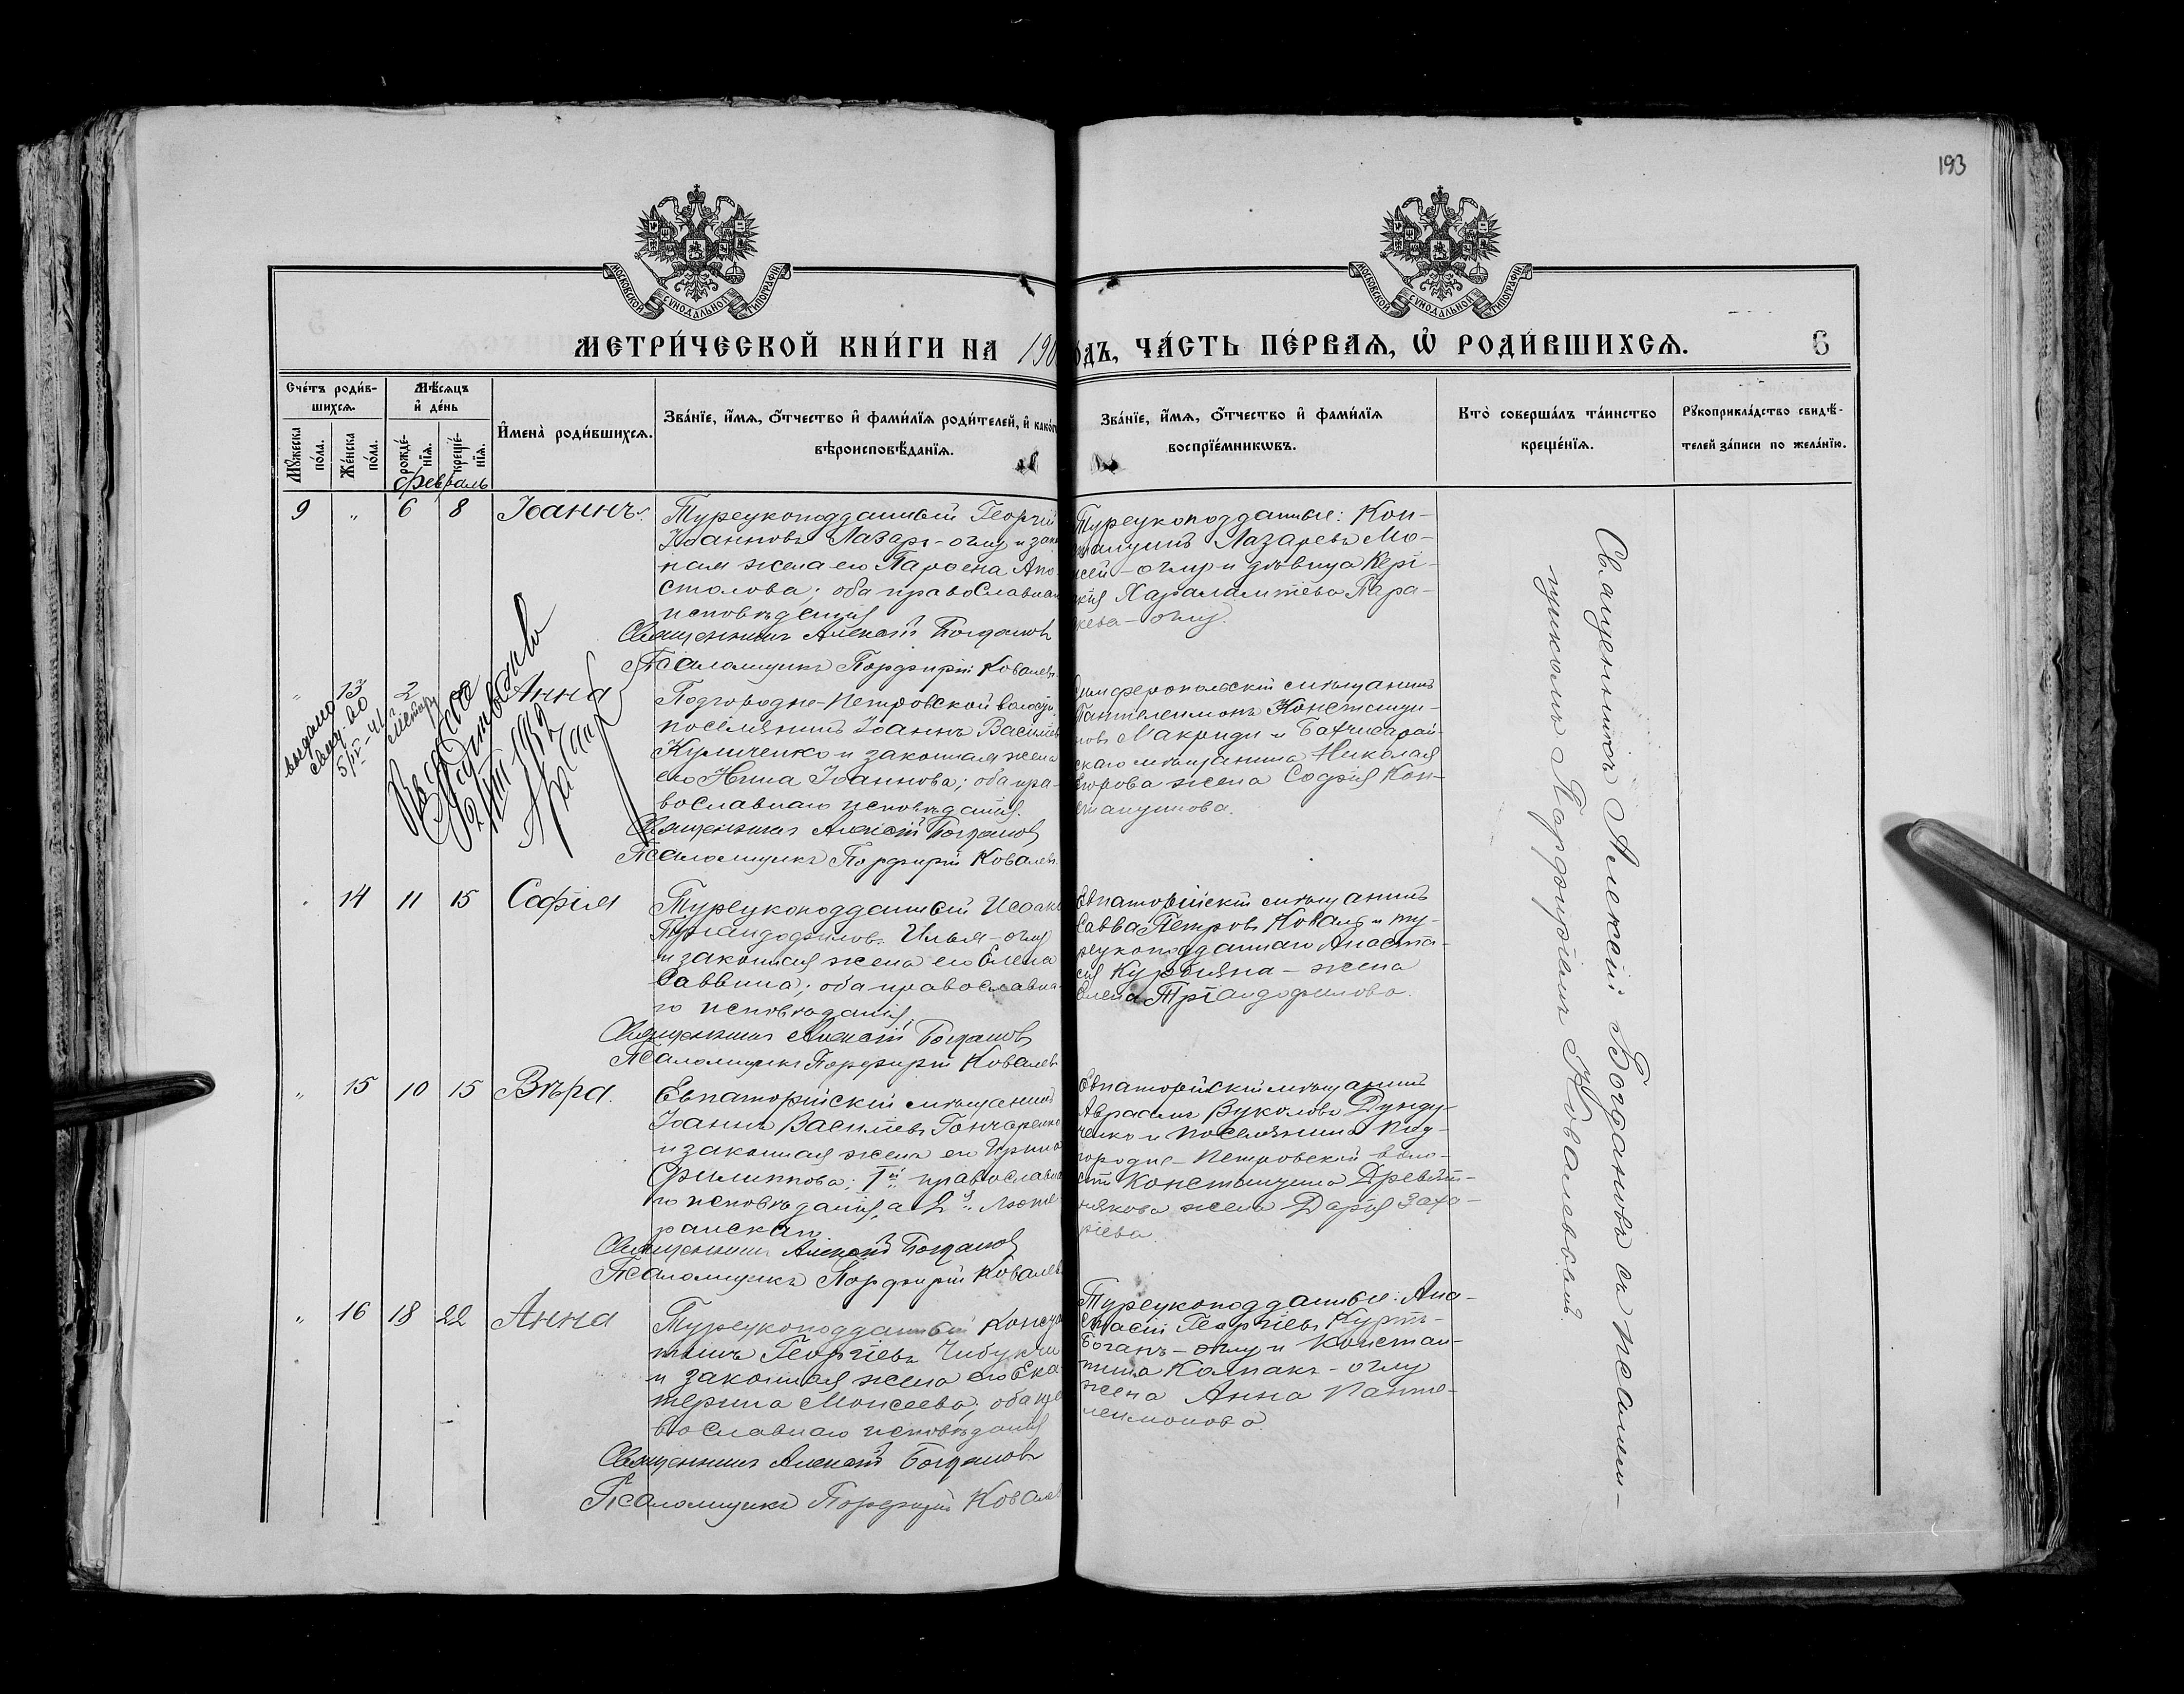 193
МОСКОВСКОЙ СѴНОДАЛЬНОЙ ТИПОГРАФІИ
МОСКОВСКОЙ СѴНОДАЛЬНОЙ ТИПОГРАФІИ
МЕТРИ́ЧЕСКОЙ КНИ́ГИ НА 190
ОДЪ, ЧА́СТЬ ПЕ́РВАѦ, Ѽ РОДИ́ВШИХСѦ. 6
Сче́тъ роди́в-
шихсѧ.
Мꙋ́жеска по́ла.
Же́нска по́ла.
Мѣ́сѧцъ и҆ де́нь
рожде́-нїѧ.
креще́-нїѧ.
Февраль
И҆мена̀ роди́вшихсѧ.
Зва́нїе, и҆́мѧ, ѻ҆́тчество и҆ фами́лїѧ роди́телей, и҆ како́г
вѣроисповѣ́данїѧ.
Зва́нїе, и҆́мѧ, ѻ҆́тчество и҆ фами́лїѧ
воспрїе́мникѡвъ.
Кто̀ соверша́лъ та́инство
креще́нїѧ.
Рꙋкоприкла́дство свидѣ́-
телей за́писи по жела́нїю.
9 " 6 8 Іоаннъ.
Турецкоподданный Георгій
Іоанновъ Лазарь-оглу и зако
ная жена его Пароена Апо-
столова; оба православна
исповѣданія
Священникъ Алексій Богдановъ
Псаломщикъ Порфирій Ковалевъ
Турецкоподданные: Кон-
стантинъ Лазаревъ Мо-
исей-оглу и дѣвица Кері-
акія Харалампіева Пара-
скева-оглу.
" 13 2 Анна
выдано
5/IV-41
1912
Подгородне-Петровской волости
поселянинъ Іоаннъ Васильев
Куличенко и законная жена
его Нина Іоаннова; оба пра-
вославнаго исповѣданія.
Священникъ Алексій Богдановъ
Псаломщикъ Порфирій Ковалевъ
Симферопольскій мѣщанинъ
Пантелеимонъ Константи-
новъ Макриди и Бахчисарай-
скаго мѣщанина Николая
жена Софія Кон-
стантинова.
" 14 11 15 Софія
Турецкоподданный Исаак
Тріандофиловъ Илья-оглу
и законная жена его Елена
Саввина; оба православна-
го исповѣданія,
Священникъ Алексій Богдановъ
Псаломщикъ Порфирій Ковалевъ
Евпаторійскій мѣщанинъ
Савва Петровъ Коваль и ту-
рецкоподданнаго Анаста-
сія жена
Елена Тріандофилова.
" 15 10 15 Вѣра.
Евпаторійскій мѣщанинъ
Іоаннъ Васильевъ Гончаренко
и законная жена его Ирина
Филиппова; 1й православна
го исповѣданія, а 2я люте-
ранскаго
Священникъ Алексій Богдановъ
Псаломщикъ Порфирій Ковалев
Евпаторійскій мѣщанинъ
Авраамъ Вуколовъ Дунду-
ченко и поселянина Под-
городне-Петровской воло-
сти Константина
жена Дарія Заха-
ріева.
" 16 18 22 Анна
Турецкоподданный Конста
тинъ Георгіевъ Чибукчи
и законная жена его Ека-
терина Моисеева; оба пра
вославнаго исповѣданія
Священникъ Алексій Богдановъ
Псаломщикъ Порфирій Ковале
Турецкоподданные: Ана-
стасій Георгіевъ Куртъ-
Боганъ-оглу и Констан-
тина Калпакъ-оглу
жена Анна Панте-
леимонова.
Священникъ Алексій Богдановъ съ псалом-
щикомъ Порфиріемъ Ковалевымъ.